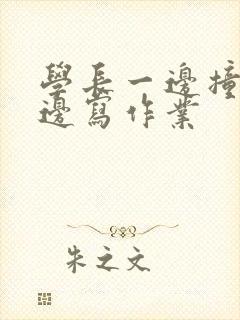 學長一邊撞
邊寫作業
朱之文